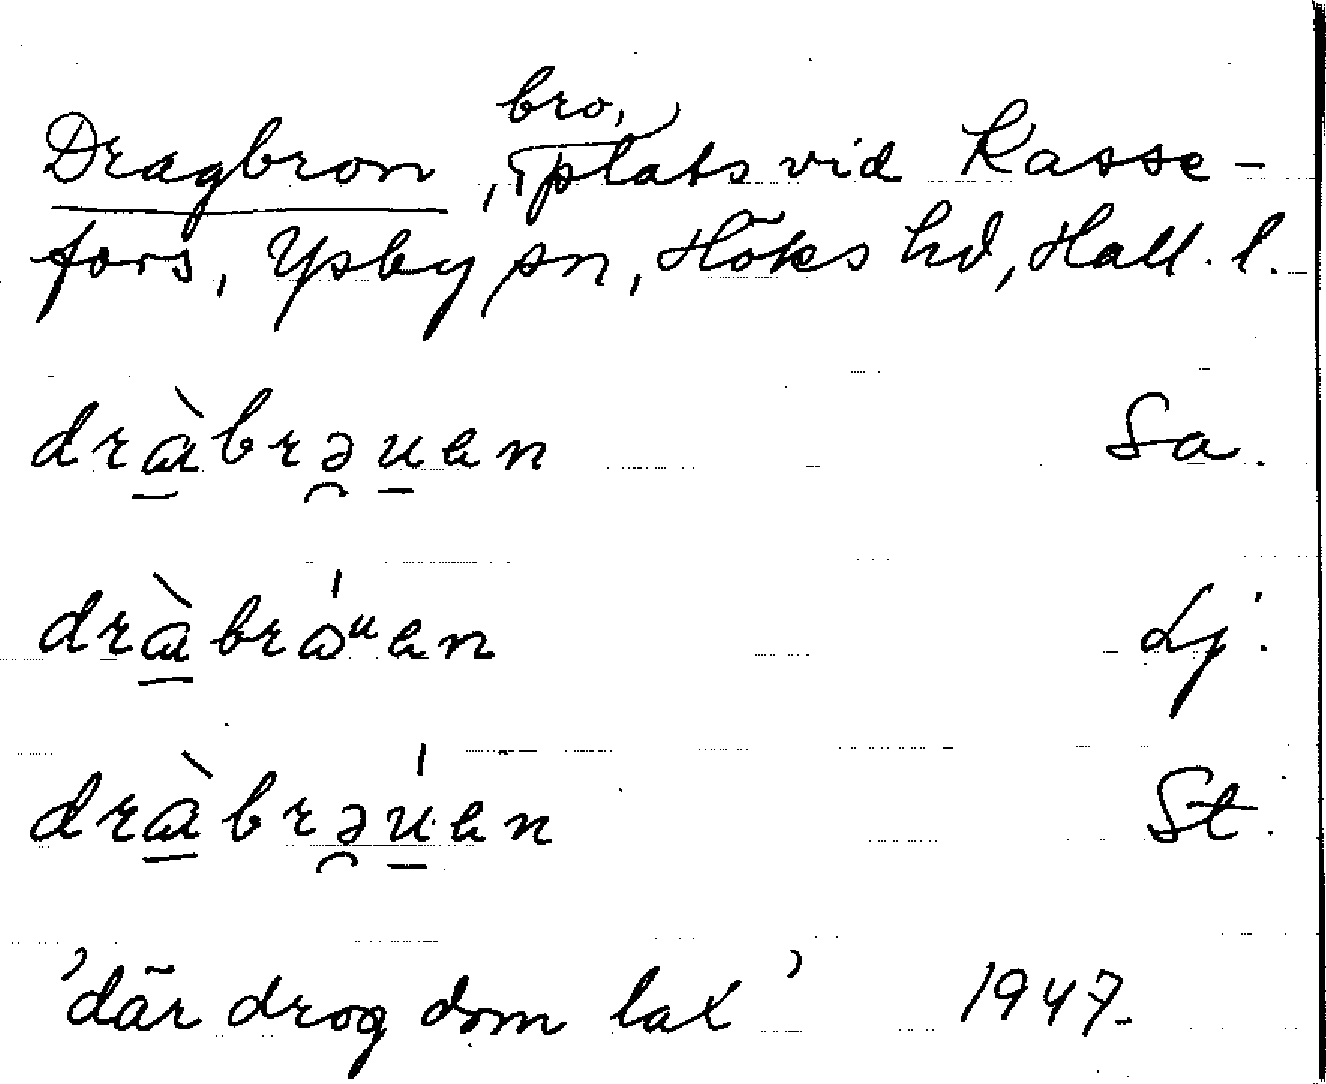 Dragbron, bro, plats vid Kasse-
fors, Ysby sn, Höks hd, Hall. l.
dràbrəuen Sa.
dràbråᵘen Lj.
dràbrəúen St.
'där drog dom lax' 1947.